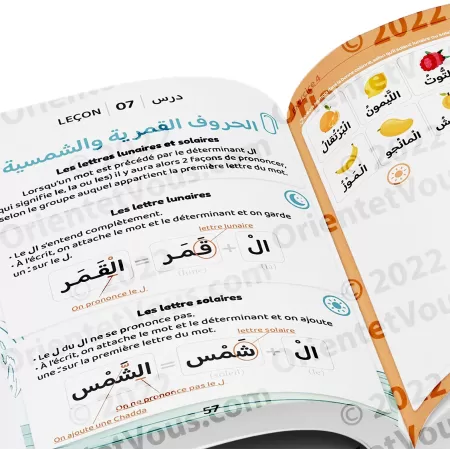 LEÇON 07 درس
الحروف القمرية والشمسية
Les lettres lunaires et solaires
Lorsqu'un mot est précédé par le déterminant ال
qui signifie le, la ou les) il y aura alors 2 façons de prononcer,
selon le groupe auquel appartient la première lettre du mot.
Les lettre lunaires
- Le ال s'entend complètement.
- À l'écrit, on attache le mot et le déterminant et on garde
un ْ sur le ل.
lettre lunaire
الْقَمَر = قَمَر + الْ
(lune) (le)
On prononce le ل
Les lettre solaires
- Le ل du ال ne se prononce pas.
- À l'écrit, on attache le mot et le déterminant et on ajoute
une ّ sur la première lettre du mot.
lettre solaire
الشَّمْس = شَمْس + الْ
(soleil) (le)
On ne prononce pas le ل
On ajoute une Chadda
57
التُّوتُ
اللَّيْمُونُ
الْبُرْتُقَالُ
الْمَانْجُو
الْمَوْزُ
© 2022
OrientetVous.com